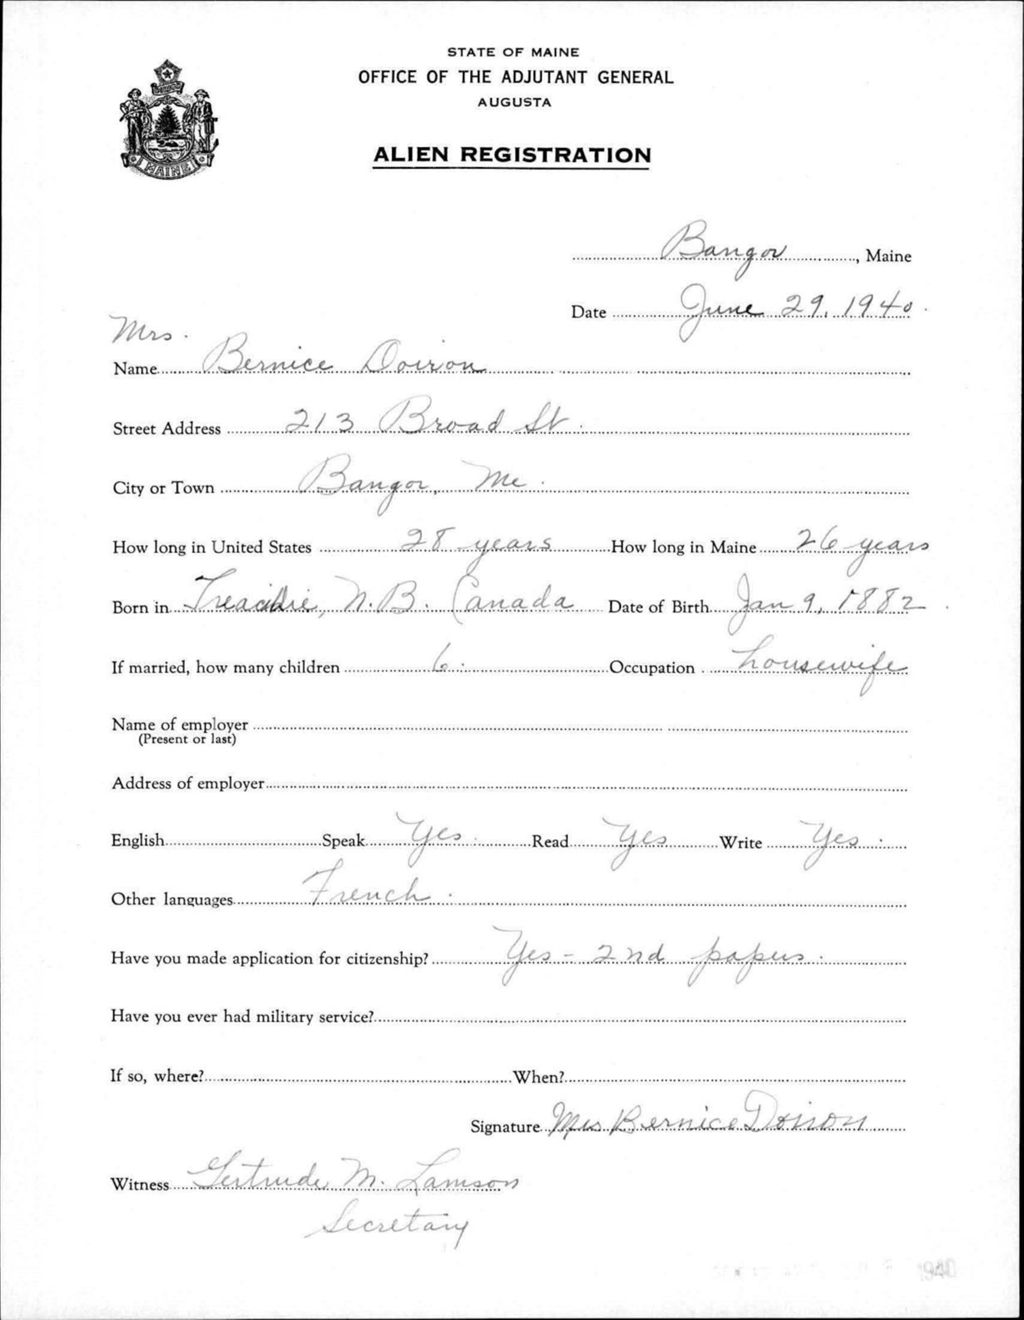 STATE OF MAINE
OFFICE OF THE ADJUTANT GENERAL
AUGUSTA
ALIEN REGISTRATION
MAINE
Bangor, Maine
Date June 29, 1940.
Mrs.
Name Bernice Doiron
Street Address 213 Broad St.
City or Town Bangor, Me.
How long in United States 28 years How long in Maine 26 years
Born in N.B. Canada Date of Birth Jan 9, 1882.
If married, how many children 6. Occupation housewife
Name of employer
(Present or last)
Address of employer
English Speak Yes. Read Yes Write Yes.
Other languages French.
Have you made application for citizenship? Yes - 2nd papers.
Have you ever had military service?
If so, where? When?
Signature Mrs Bernice Doiron
Witness Gertrude M. Lamson
Secretary
1940